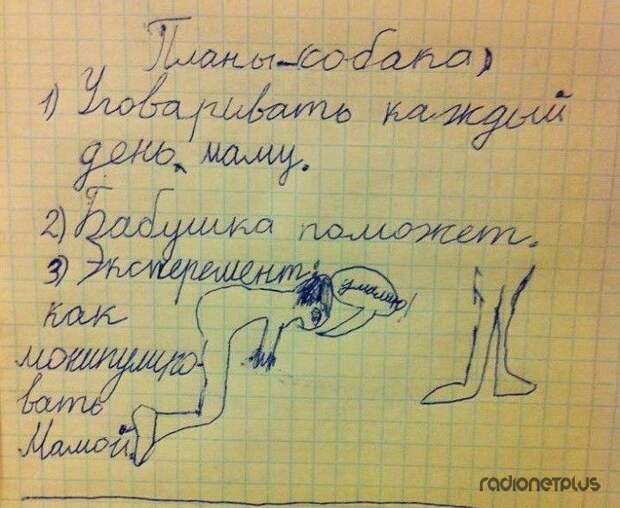 Планы (собака)
1) Уговаривать каждый
день маму.
2) Бабушка поможет.
3) Эксперемент:
умоляю!
как
монипулиро-
вать
Мамой.
radionetplus